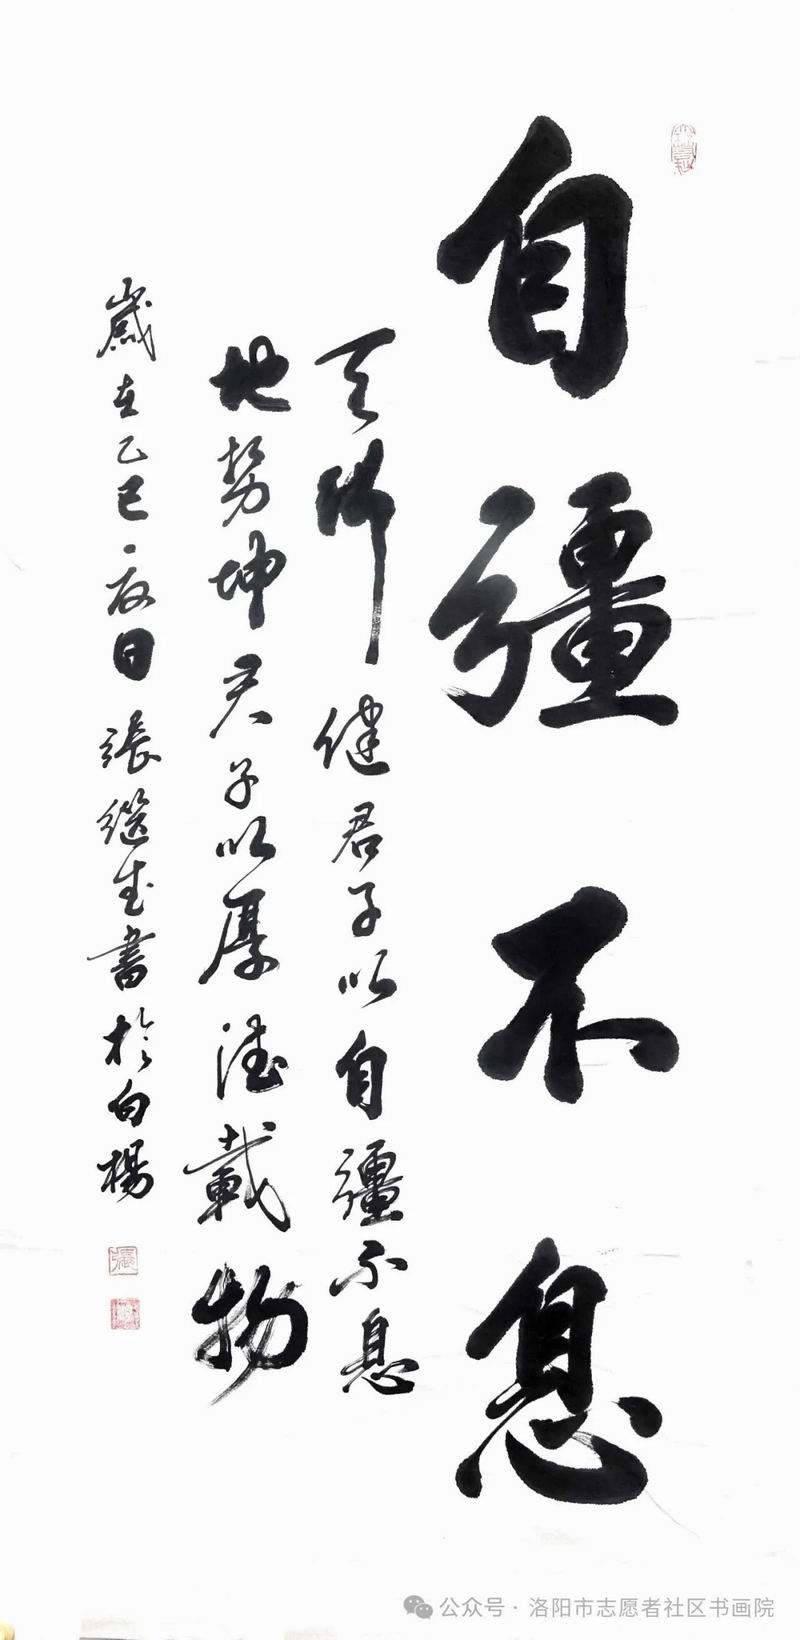 自彊不息
天行健君子以自彊不息
地势坤君子以厚德載物
歲在乙巳夏日張繼書於白楊
公众号·洛阳市志愿者社区书画院